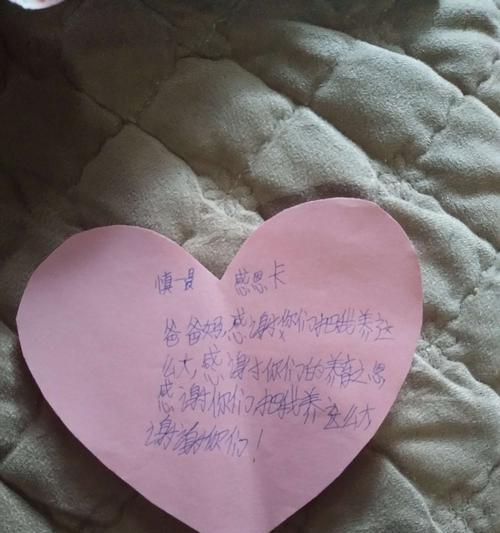 感恩卡
爸爸妈,感谢你们把我养这
么大,感谢你们的养育之恩
感谢你们把我养这么大
谢谢你们!